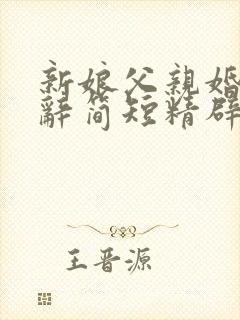 新娘父親婚
辭简短精辟
王晋源